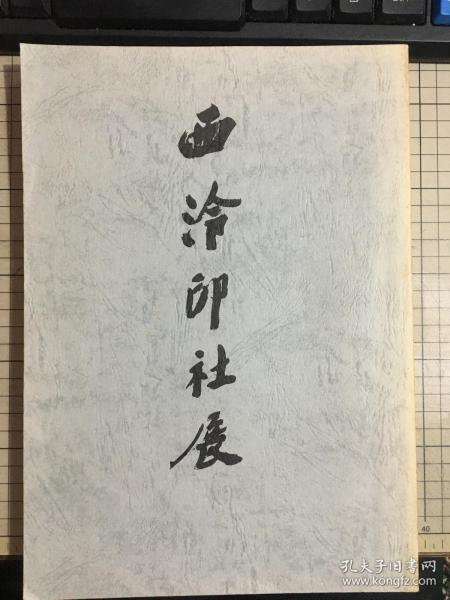 西泠印社展
40
孔夫子旧书网
www.kongfz.com